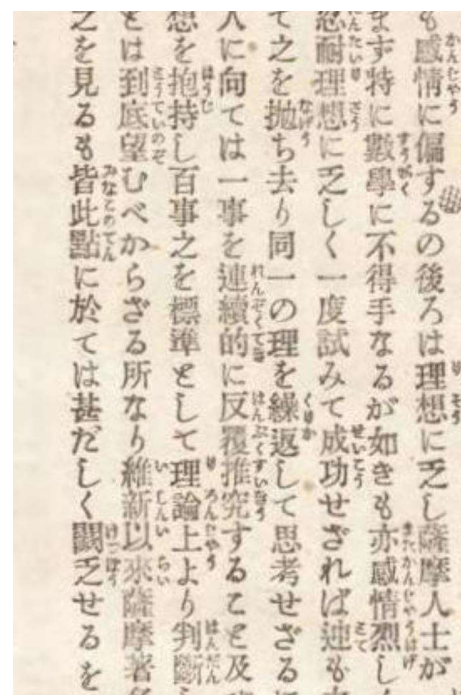 も感情に偏するの後ろは理想に乏し薩摩人士が
まず特に數學に不得手なるが如きも亦感情烈し
忍耐理想に乏しく一度試みて成功せざれば迚も
て之を抛ち去り同一の理を繰返して思考せざる
人に向ては一事を連續的に反覆推究すること及
想を抱持し百事之を標準として理論上より判斷
とは到底望むべからざる所なり維新以來薩摩著名
之を見るも皆此點に於ては甚だしく闕乏せるを